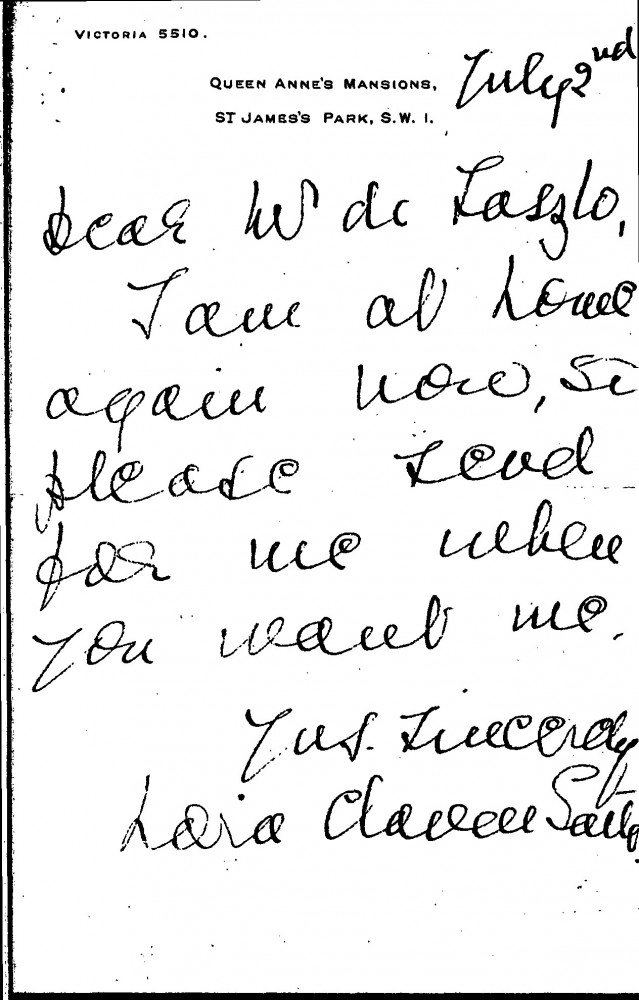 VICTORIA 5510.
QUEEN ANNE'S MANSIONS,
ST JAMES'S PARK, S.W. 1.
July 2nd
Dear Mr de Laszlo,
I am at home
again now, so
please send
for me when
you want me.
Yrs. sincerely